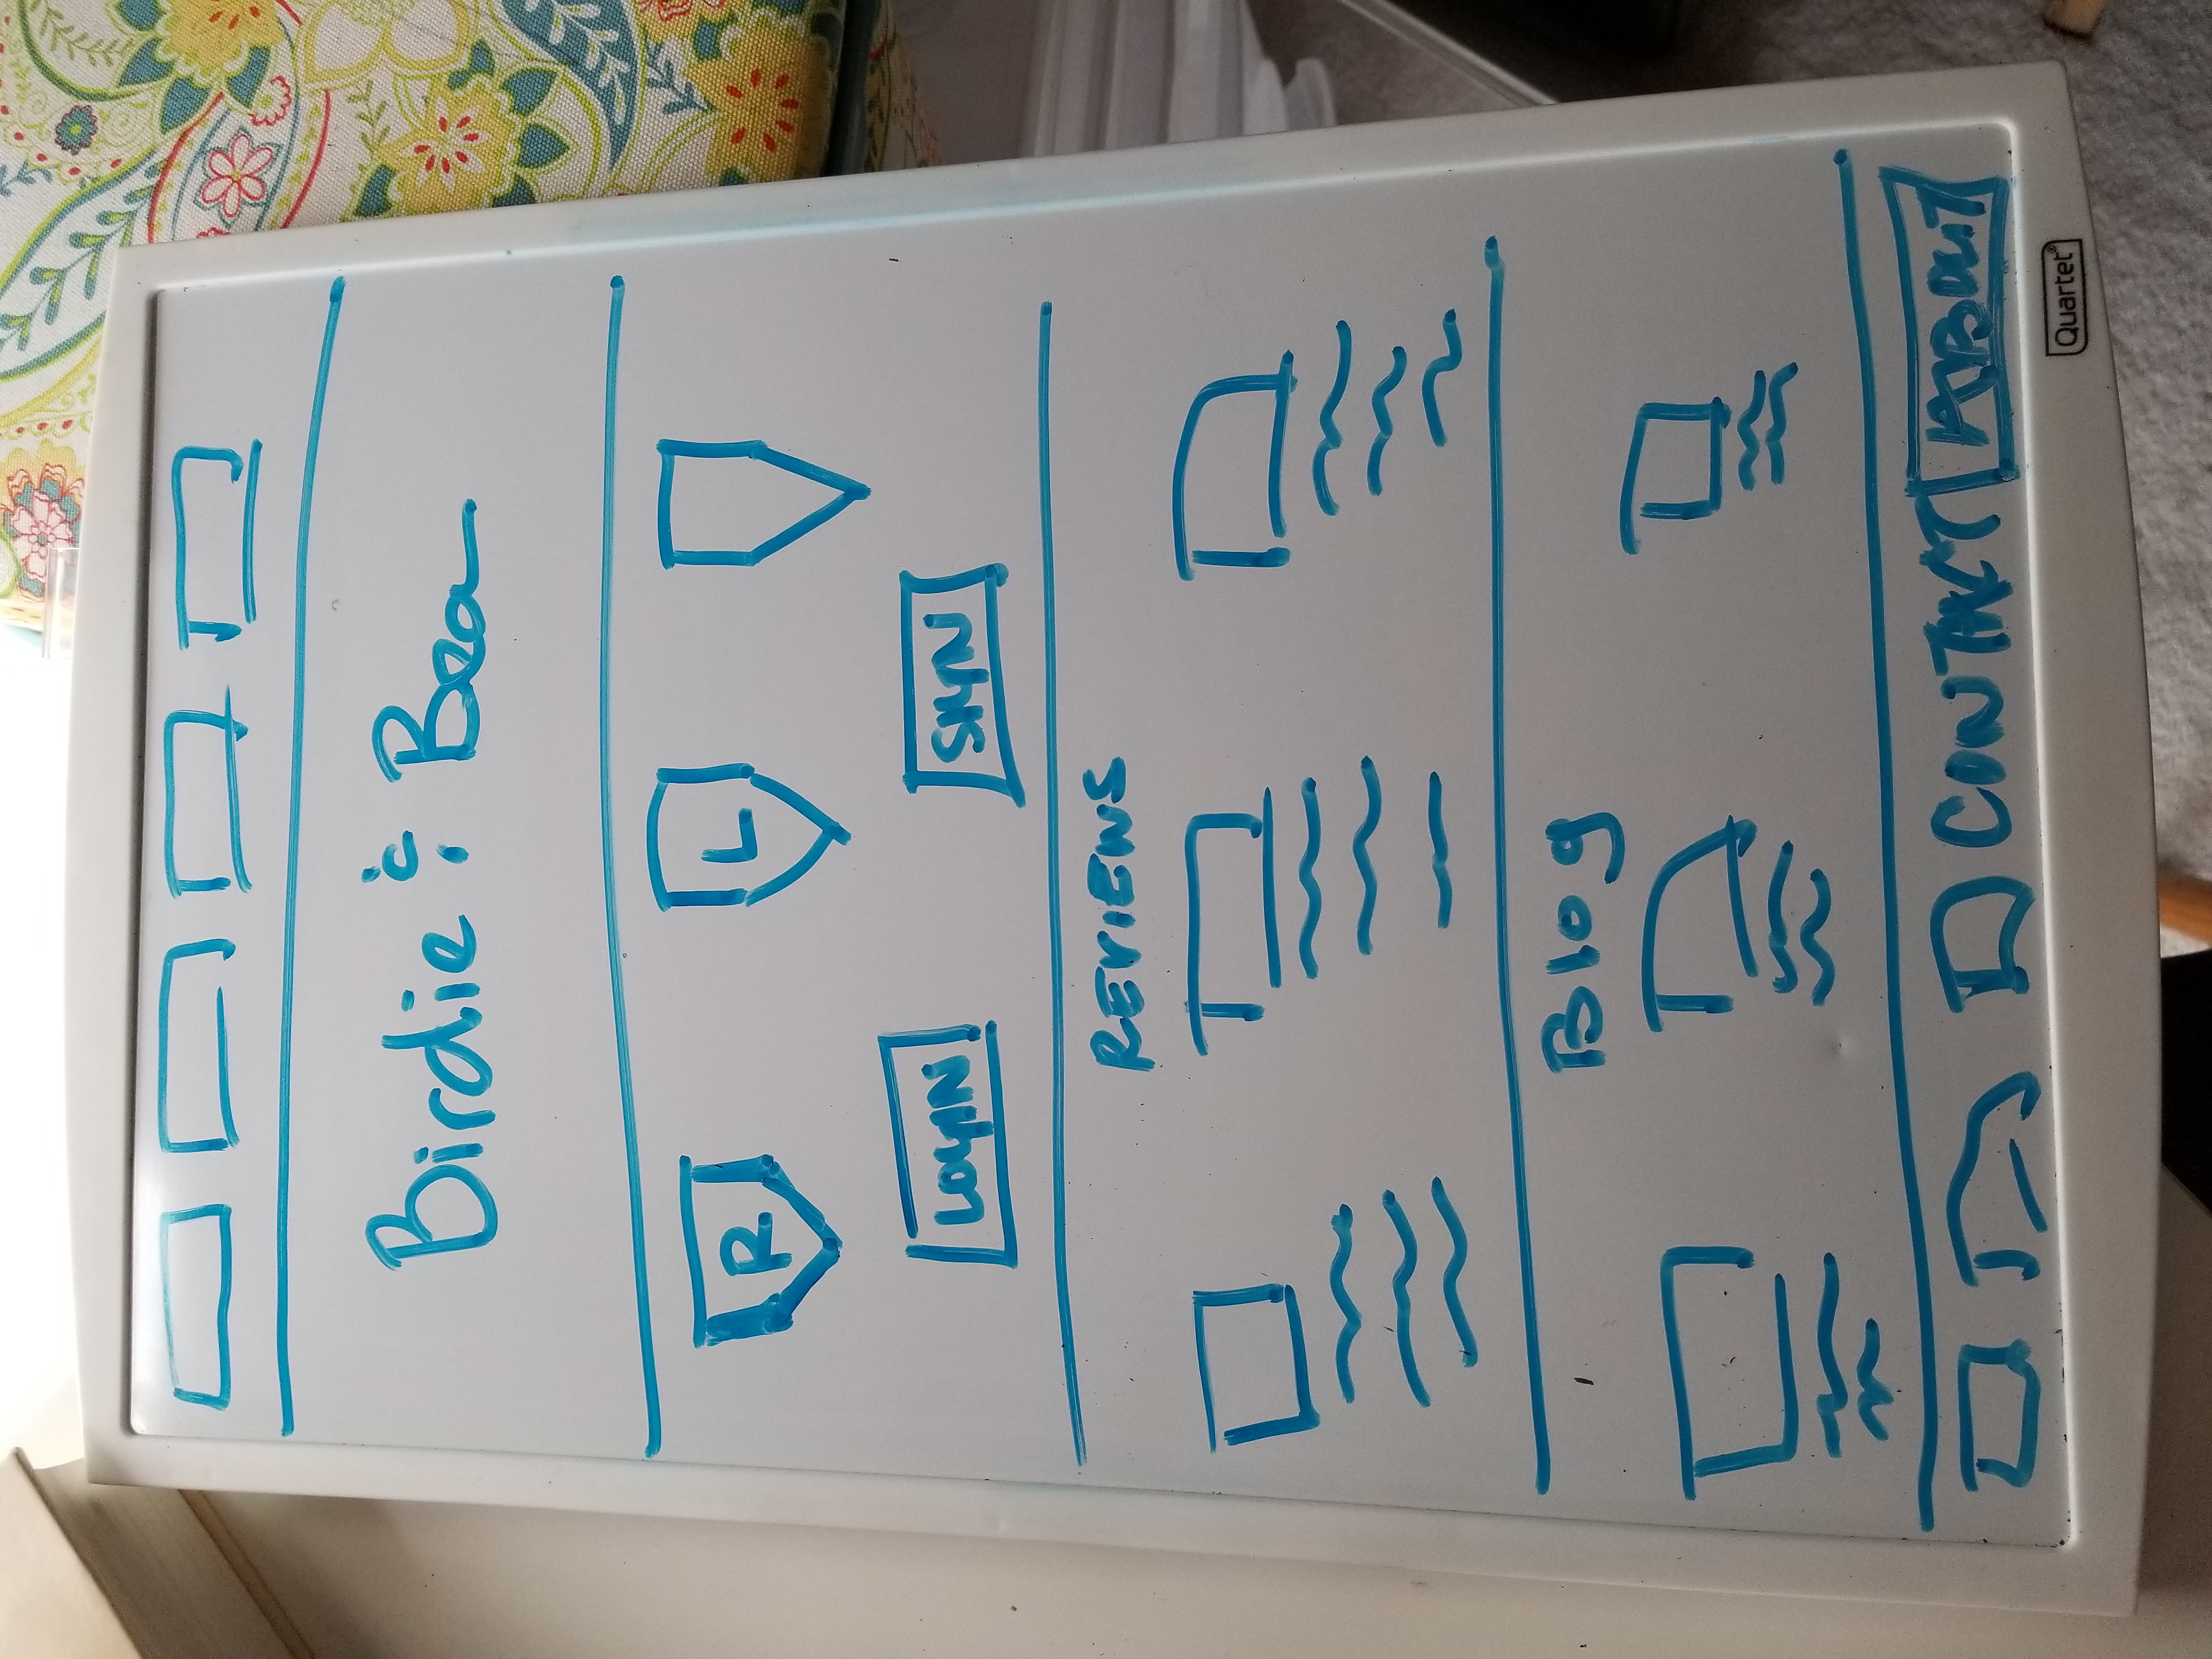 Birdie & Bea
R L
LOGIN SIGN
REVIEWS
Blog
CONTACT ABOUT
Quartet®